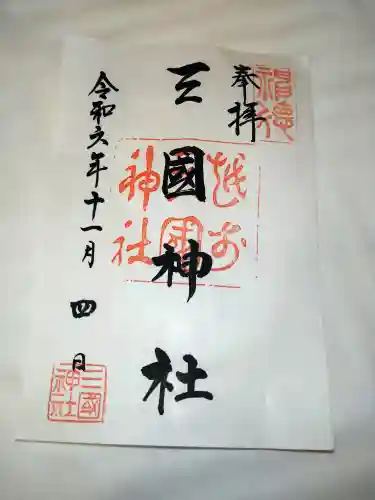 奉拝
三國神社
越前
三國
神社
令和六年十一月四日
三國
神社